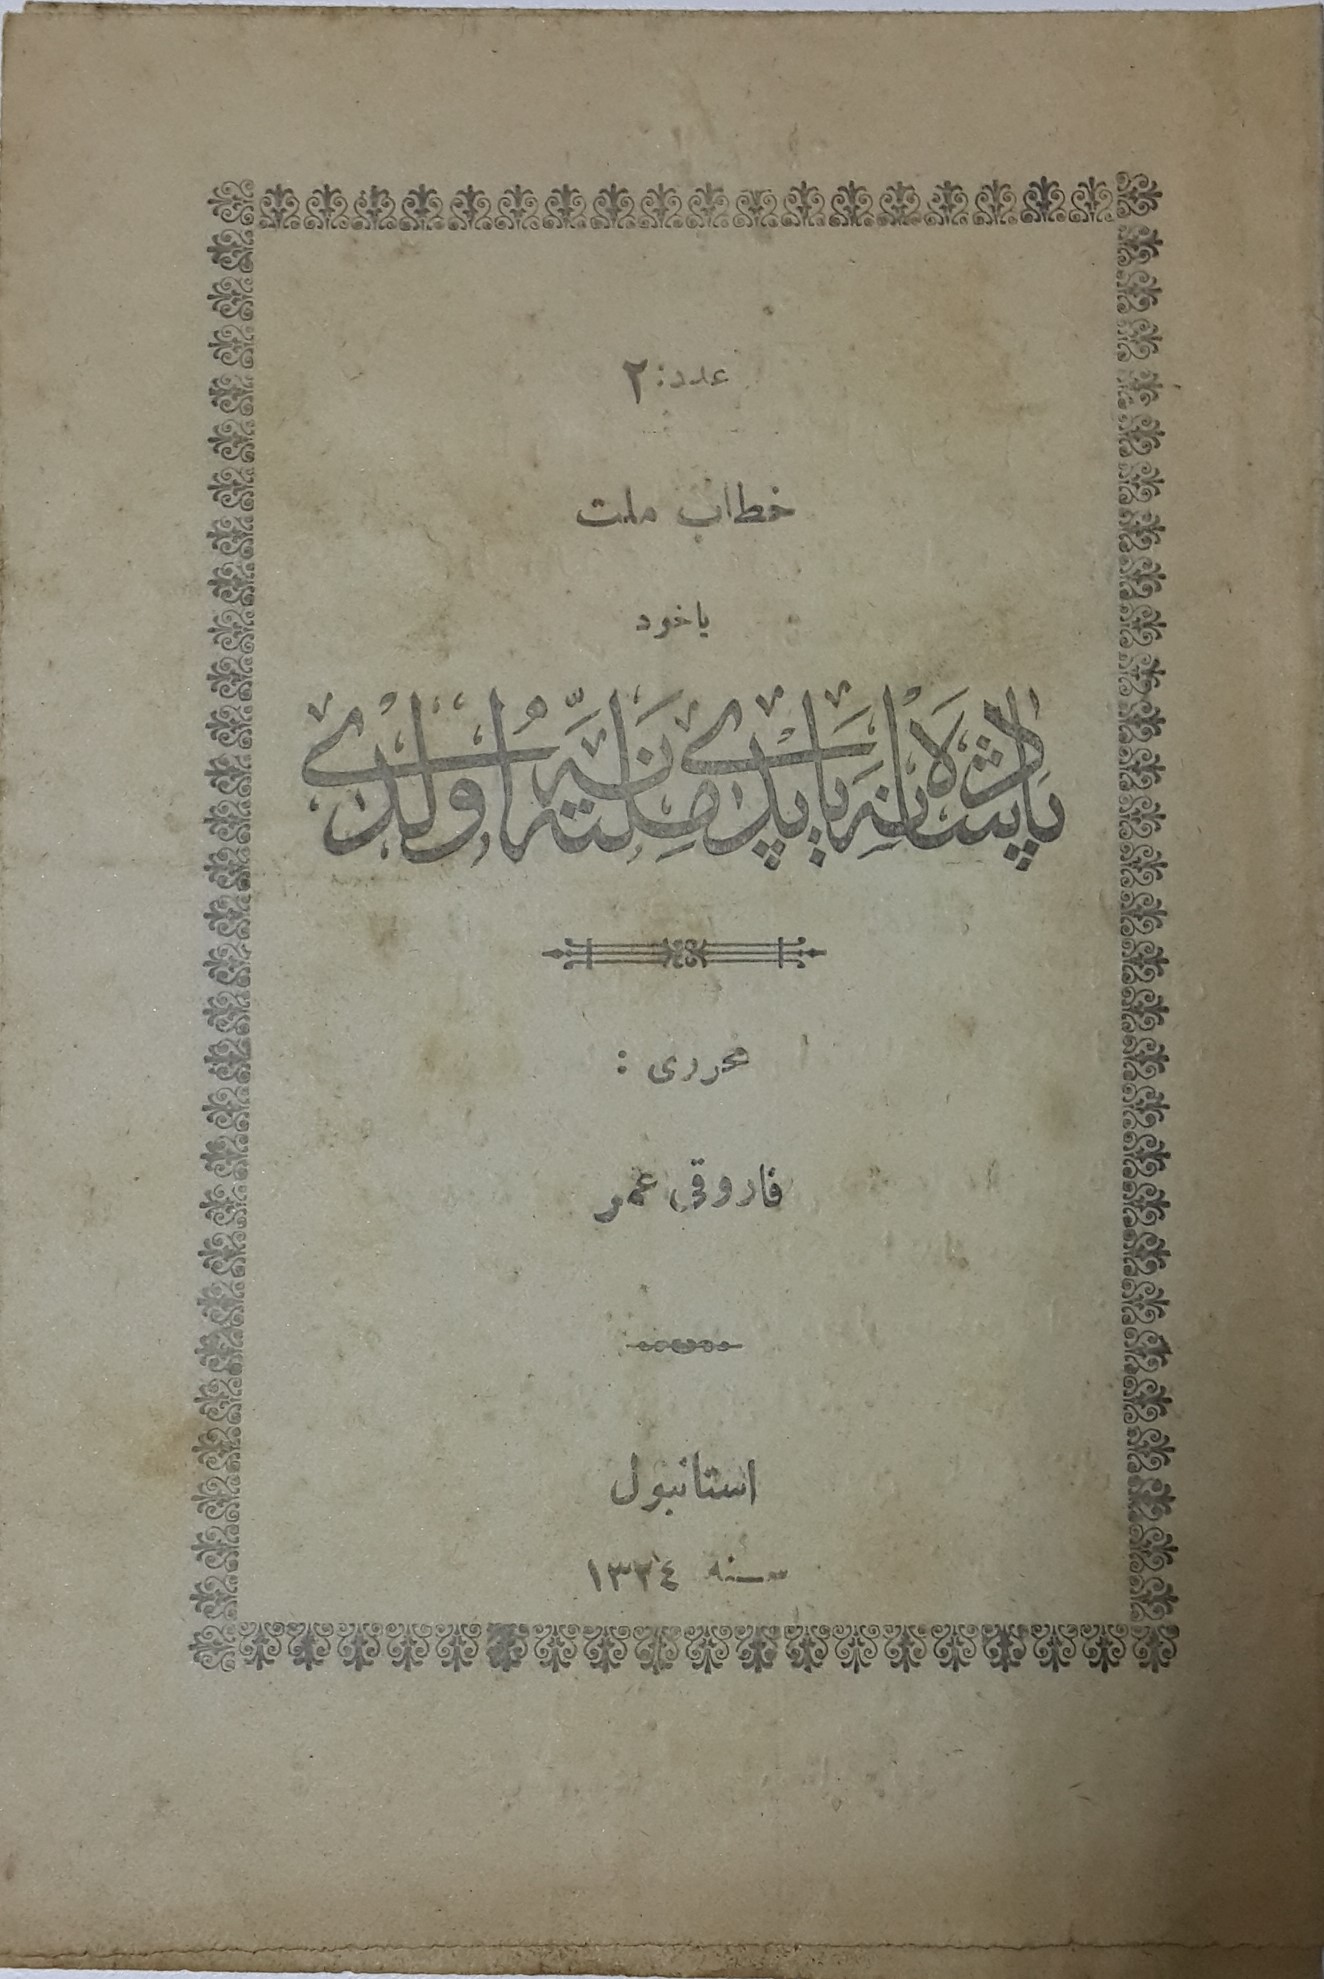 عدد: ٢
خطاب ملت
یاخود
پادشاه نه یاپدی ملته نه اولدی
محرری :
فاروقی عمر
استانبول
سنه ١٣٢٤